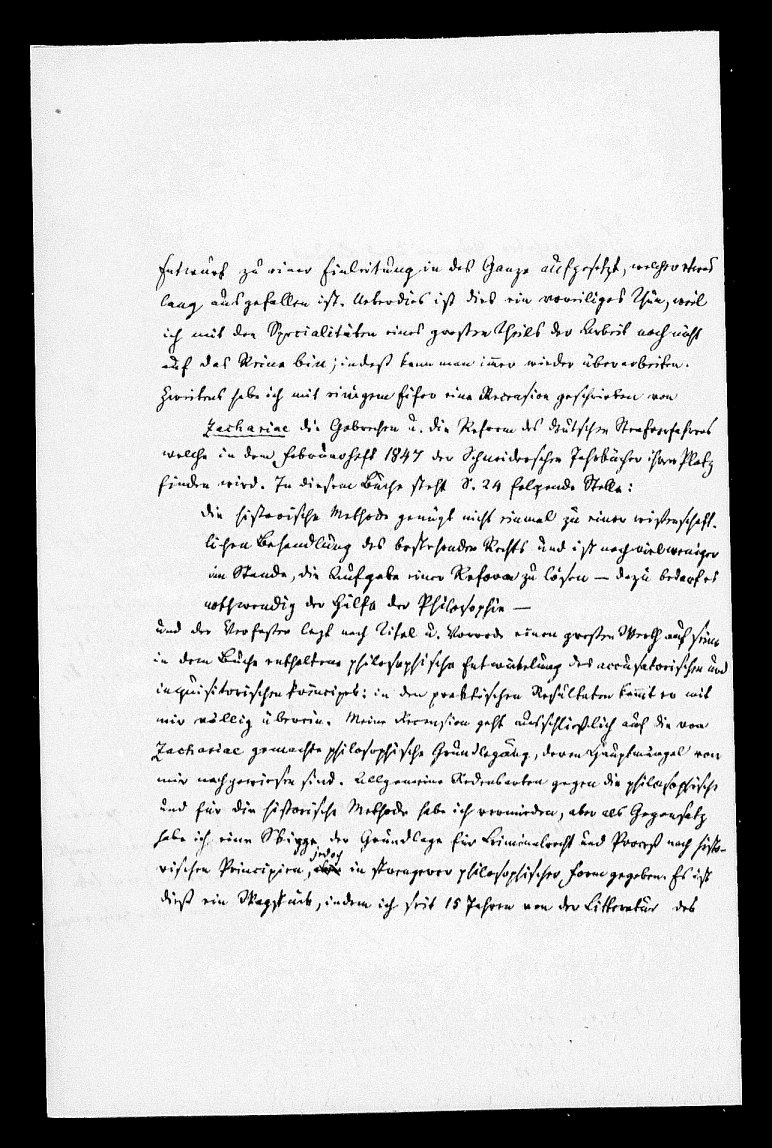 Entwurf zu einer Einleitung in das Ganze aufgesetzt, welcher etwas
lang ausgefallen ist. Ueberdies ist dies ein voreiliges Thun, weil
ich mit den Specialitäten eines grossen Theils der Arbeit noch nicht
auf das Reine bin; indeß kann man immer wieder überarbeiten.
Zweitens habe ich mit einigem Eifer eine Recension geschrieben von
Zachariae die Gebrechen u. die Reform des deutschen Strafverfahrens
welche in dem Februarheft 1847 der Schneiderschen Jahrbücher ihren Platz
finden wird. In diesem Buche steht S. 24 folgende Stelle:
die historische Methode genügt nicht einmal zu einer wissenschaft-
lichen Behandlung des bestehenden Rechts und ist noch viel weniger
im Stande, die Aufgabe einer Reform zu lösen — dazu bedarf es
nothwendig der Hilfe der Philosophie —
und der Verfasser legt nach Titel u. Vorrede einen grossen Werth auf seine
in dem Buche enthaltene philosophische Entwickelung des accusatorischen und
inquisitorischen Princips: in den praktischen Resultaten kommt er mit
mir völlig überein. Meine Recension geht ausschließlich auf die von
Zachariae gemachte philosophische Grundlegung, deren Hauptmängel von
mir nachgewiesen sind. Allgemeine Redensarten gegen die philosophische
und für die historische Methode habe ich vermieden, aber als Gegensatz
habe ich eine Skizze der Grundlage für Criminalrecht und Proceß nach histo-
rischen Principien, jedoch in strengerer philosophischer Form gegeben. Es ist
dieß ein Wagstück, indem ich seit 15 Jahren von der Litteratur des